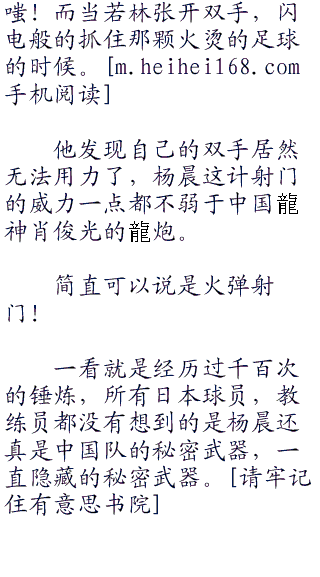 嗤！而当若林张开双手，闪
电般的抓住那颗火烫的足球
的时候。[m.heihei168.com
手机阅读]
他发现自己的双手居然
无法用力了，杨晨这计射门
的威力一点都不弱于中国龍
神肖俊光的龍炮。
简直可以说是火弹射
门！
一看就是经历过千百次
的锤炼，所有日本球员，教
练员都没有想到的是杨晨还
真是中国队的秘密武器，一
直隐藏的秘密武器。[请牢记
住有意思书院]